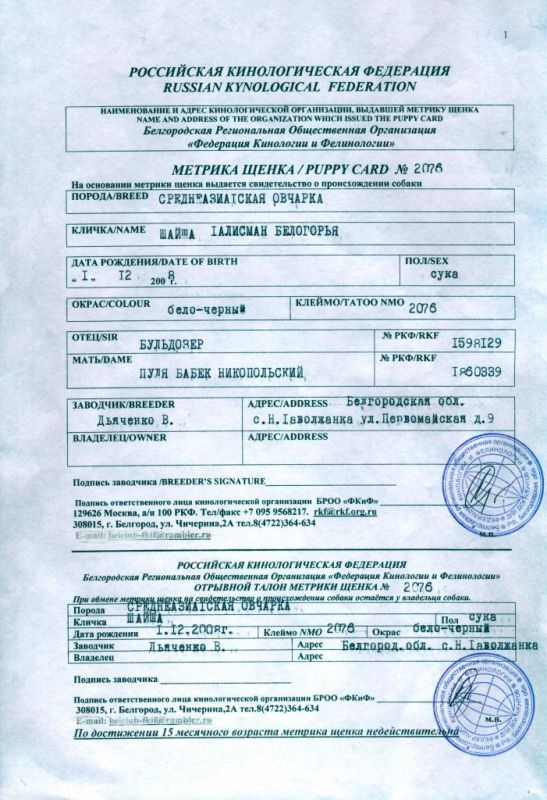 1
РОССИЙСКАЯ КИНОЛОГИЧЕСКАЯ ФЕДЕРАЦИЯ
RUSSIAN KYNOLOGICAL FEDERATION
НАИМЕНОВАНИЕ И АДРЕС КИНОЛОГИЧЕСКОЙ ОРГАНИЗАЦИИ, ВЫДАВШЕЙ МЕТРИКУ ЩЕНКА
NAME AND ADDRESS OF THE ORGANIZATION WHICH ISSUED THE PUPPY CARD
Белгородская Региональная Общественная Организация
«Федерация Кинологии и Фелинологии»
МЕТРИКА ЩЕНКА / PUPPY CARD № 2076
На основании метрики щенка выдается свидетельство о происхождении собаки
ПОРОДА/BREED СРЕДНЕАЗИАТСКАЯ ОВЧАРКА
КЛИЧКА/NAME ШАЙША ТАЛИСМАН БЕЛОГОРЬЯ
ДАТА РОЖДЕНИЯ/DATE OF BIRTH ПОЛ/SEX
„ 1 „ 12 2008 г. сука
ОКРАС/COLOUR бело-черный КЛЕЙМО/TATOO NMO 2076
ОТЕЦ/SIR БУЛЬДОЗЕР № РКФ/RKF 1598129
МАТЬ/DAME ПУЛЯ БАБЕК НИКОПОЛЬСКИЙ № РКФ/RKF 1860339
ЗАВОДЧИК/BREEDER АДРЕС/ADDRESS Белгородская обл.
Дьяченко В. с.Н.Таволжанка ул.Первомайская д.9
ВЛАДЕЛЕЦ/OWNER АДРЕС/ADDRESS
Подпись заводчика /BREEDER'S SIGNATURE
Подпись ответственного лица кинологической организации БРОО «ФКиФ»
129626 Москва, а/я 100 РКФ. Тел/факс +7 095 9568217. rkf@rkf.org.ru
308015, г. Белгород, ул. Чичерина,2А тел.8(4722)364-634
м.п.
E-mail: belclub-fkif@rambler.ru
РОССИЙСКАЯ КИНОЛОГИЧЕСКАЯ ФЕДЕРАЦИЯ
Белгородская Региональная Общественная Организация «Федерация Кинологии и Фелинологии»
ОТРЫВНОЙ ТАЛОН МЕТРИКИ ЩЕНКА № 2076
При обмене метрики щенка на свидетельство о происхождении собаки остаётся у владельца собаки.
Порода СРЕДНЕАЗИАТСКАЯ ОВЧАРКА
Кличка ШАЙША Пол сука
Дата рождения 1.12.2008г. Клеймо NMO 2076 Окрас бело-черный
Заводчик Дьяченко В. Адрес Белгород.обл. с.Н.Таволжанка
Владелец Адрес
Подпись заводчика
Подпись ответственного лица кинологической организации БРОО «ФКиФ»
308015, г. Белгород, ул. Чичерина,2А тел.8(4722)364-634
м.п.
E-mail: belclub-fkif@rambler.ru
По достижении 15 месячного возраста метрика щенка недействительна